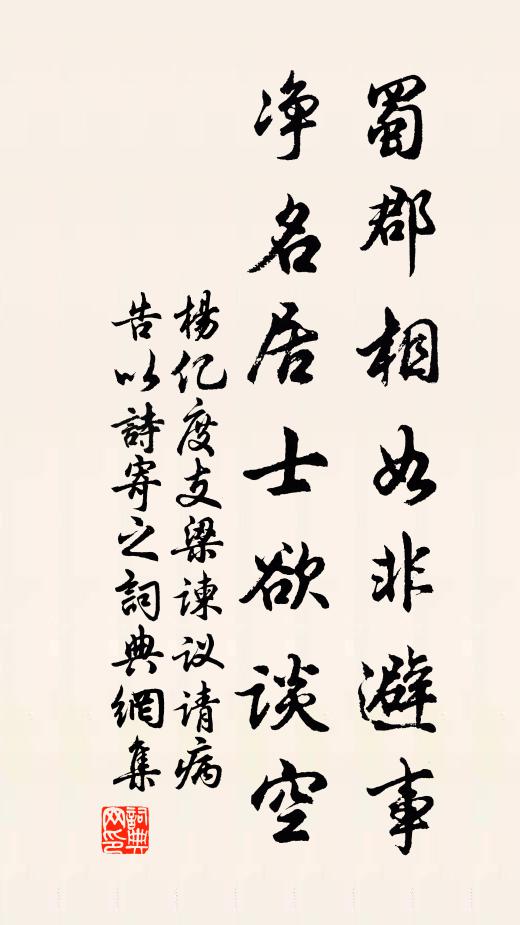 蜀郡相如非避事
净名居士欲谈空
楊亿度支梁諫议请病
告以詩寄之詞典網集
詞典
网印